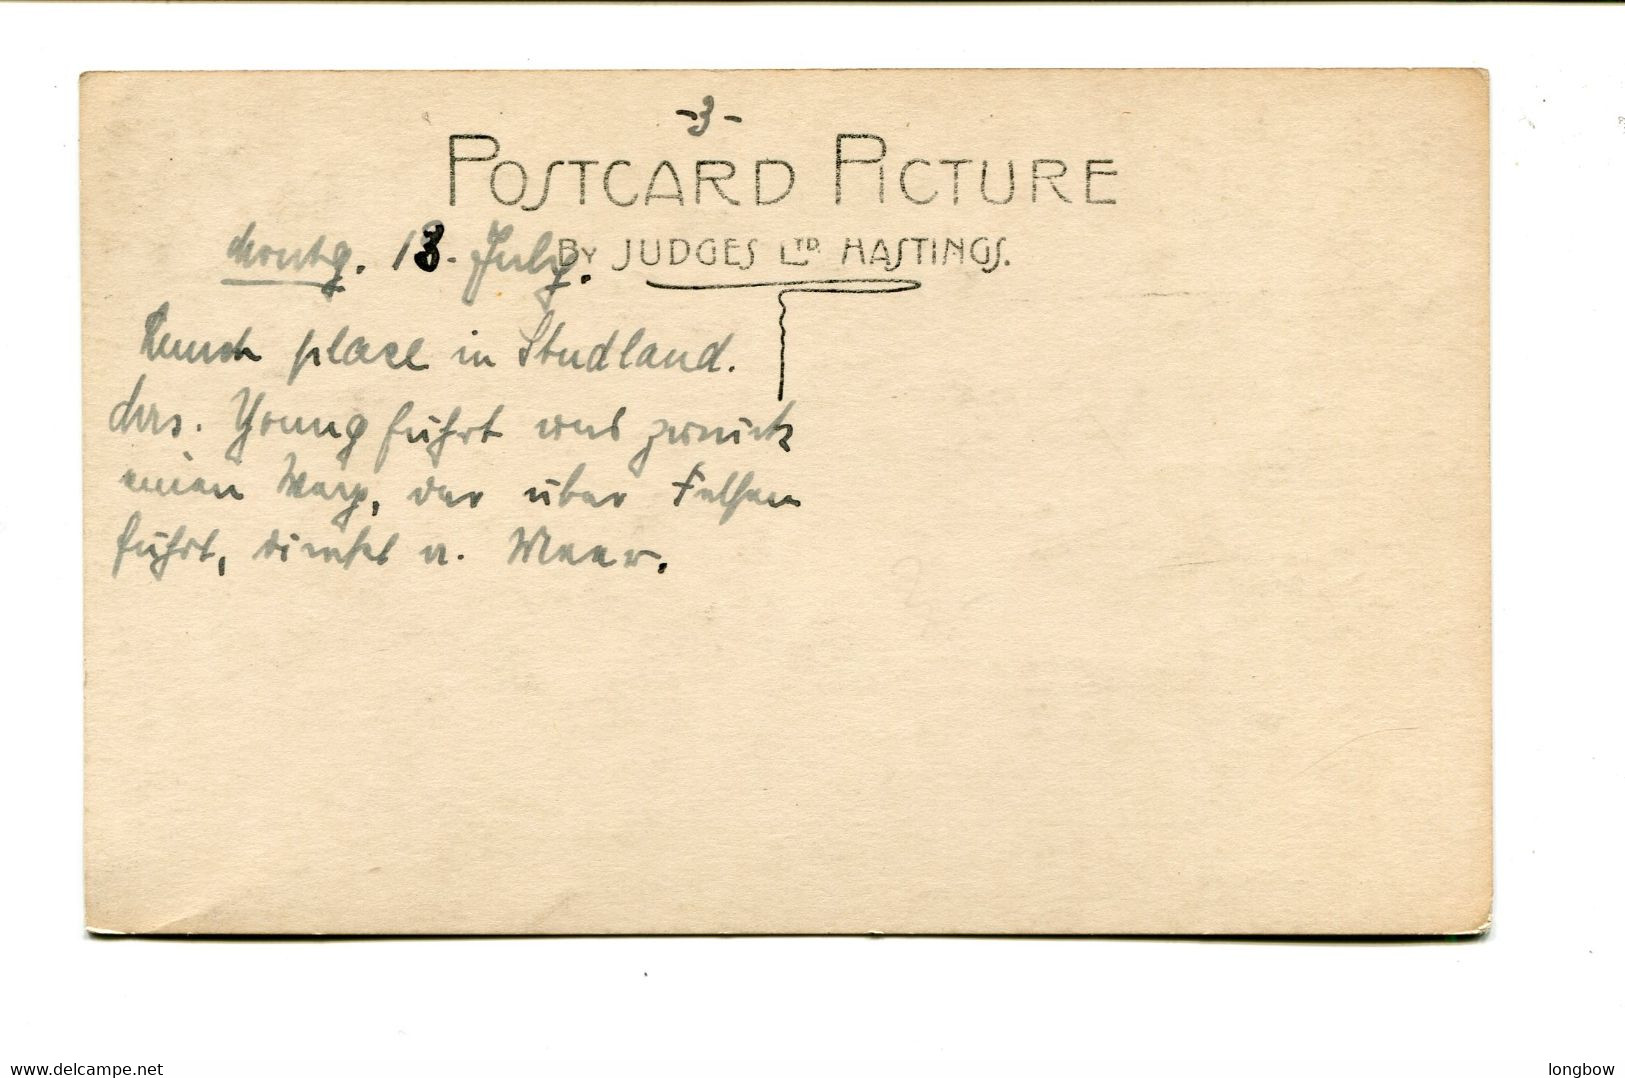 -3-
POSTCARD PICTURE
BY JUDGES LTD. HASTINGS.
Montg. 13. July.
Lunch place in Studland.
Mrs. Young führt uns zurück
einen Weg, der über Felsen
führt, direkt a. Meer.
www.delcampe.net
longbow